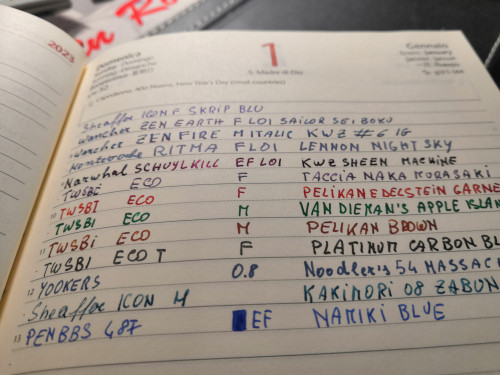 2023
Domenica
1
S. Madre di Dio
Gennaio
January
Sheaffer ICON F SKRIP BLU
Wancher ZEN EARTH F LOI SAILOR SEIBOKU
Wancher ZEN FIRE M ITALIC KWZ #6 IG
Monteverde RITMA F LOI LENNON NIGHT SKY
Narwhal SCHUYLKILL EF LOI KWZ SHEEN MACHINE
TWSBI ECO F TACCIA NAKA MURASAKI
10 TWSBI ECO F PELIKAN EDELSTEIN GARNE
TWSBI ECO M VAN DIEMAN'S APPLE ISLAN
11 TWSBi ECO M PELIKAN BROWN
TWSBI ECO T F PLATINUM CARBON BL
12 YOOKERS 0.8 Noodler's 54 MASSACH
Sheaffer ICON M KAKIMORI 08 ZABUN
13 PENBBS 487 EF NAMIKI BLUE